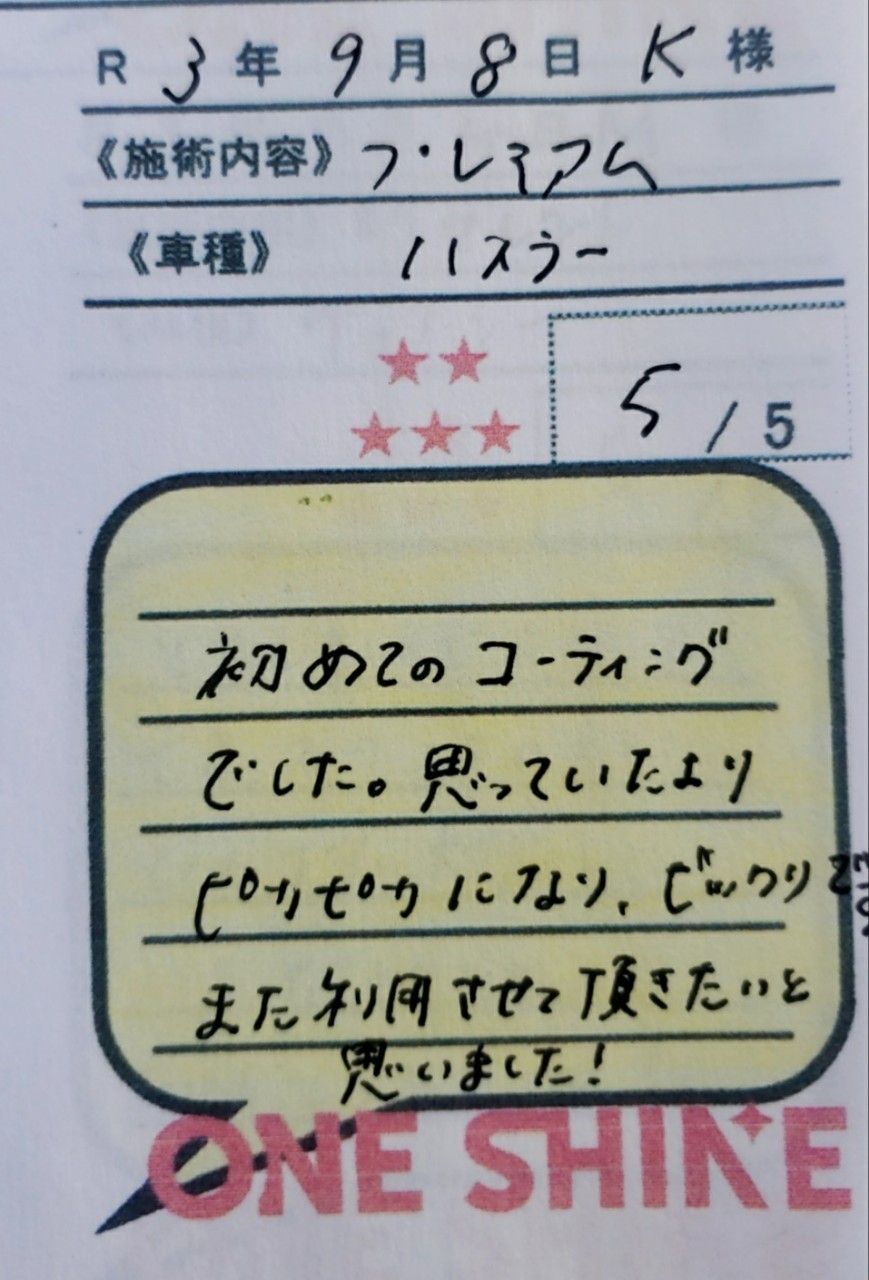 R 3年 9月 8日 K 様
《施術内容》プレミアム
《車種》 ハスラー
5 / 5
初めてのコーティング
でした。思っていたより
ピカピカになり、ビックリです。
また利用させて頂きたいと
思いました!
ONE SHINE